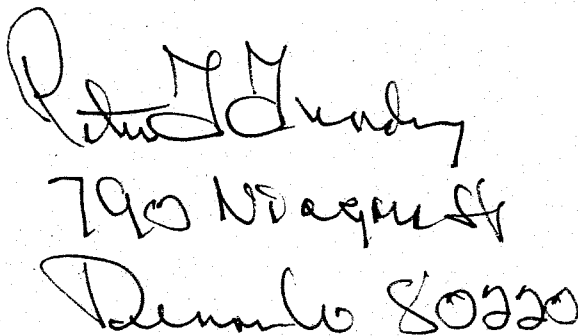 Peter J
790 Niagara St
Denver Co 80220